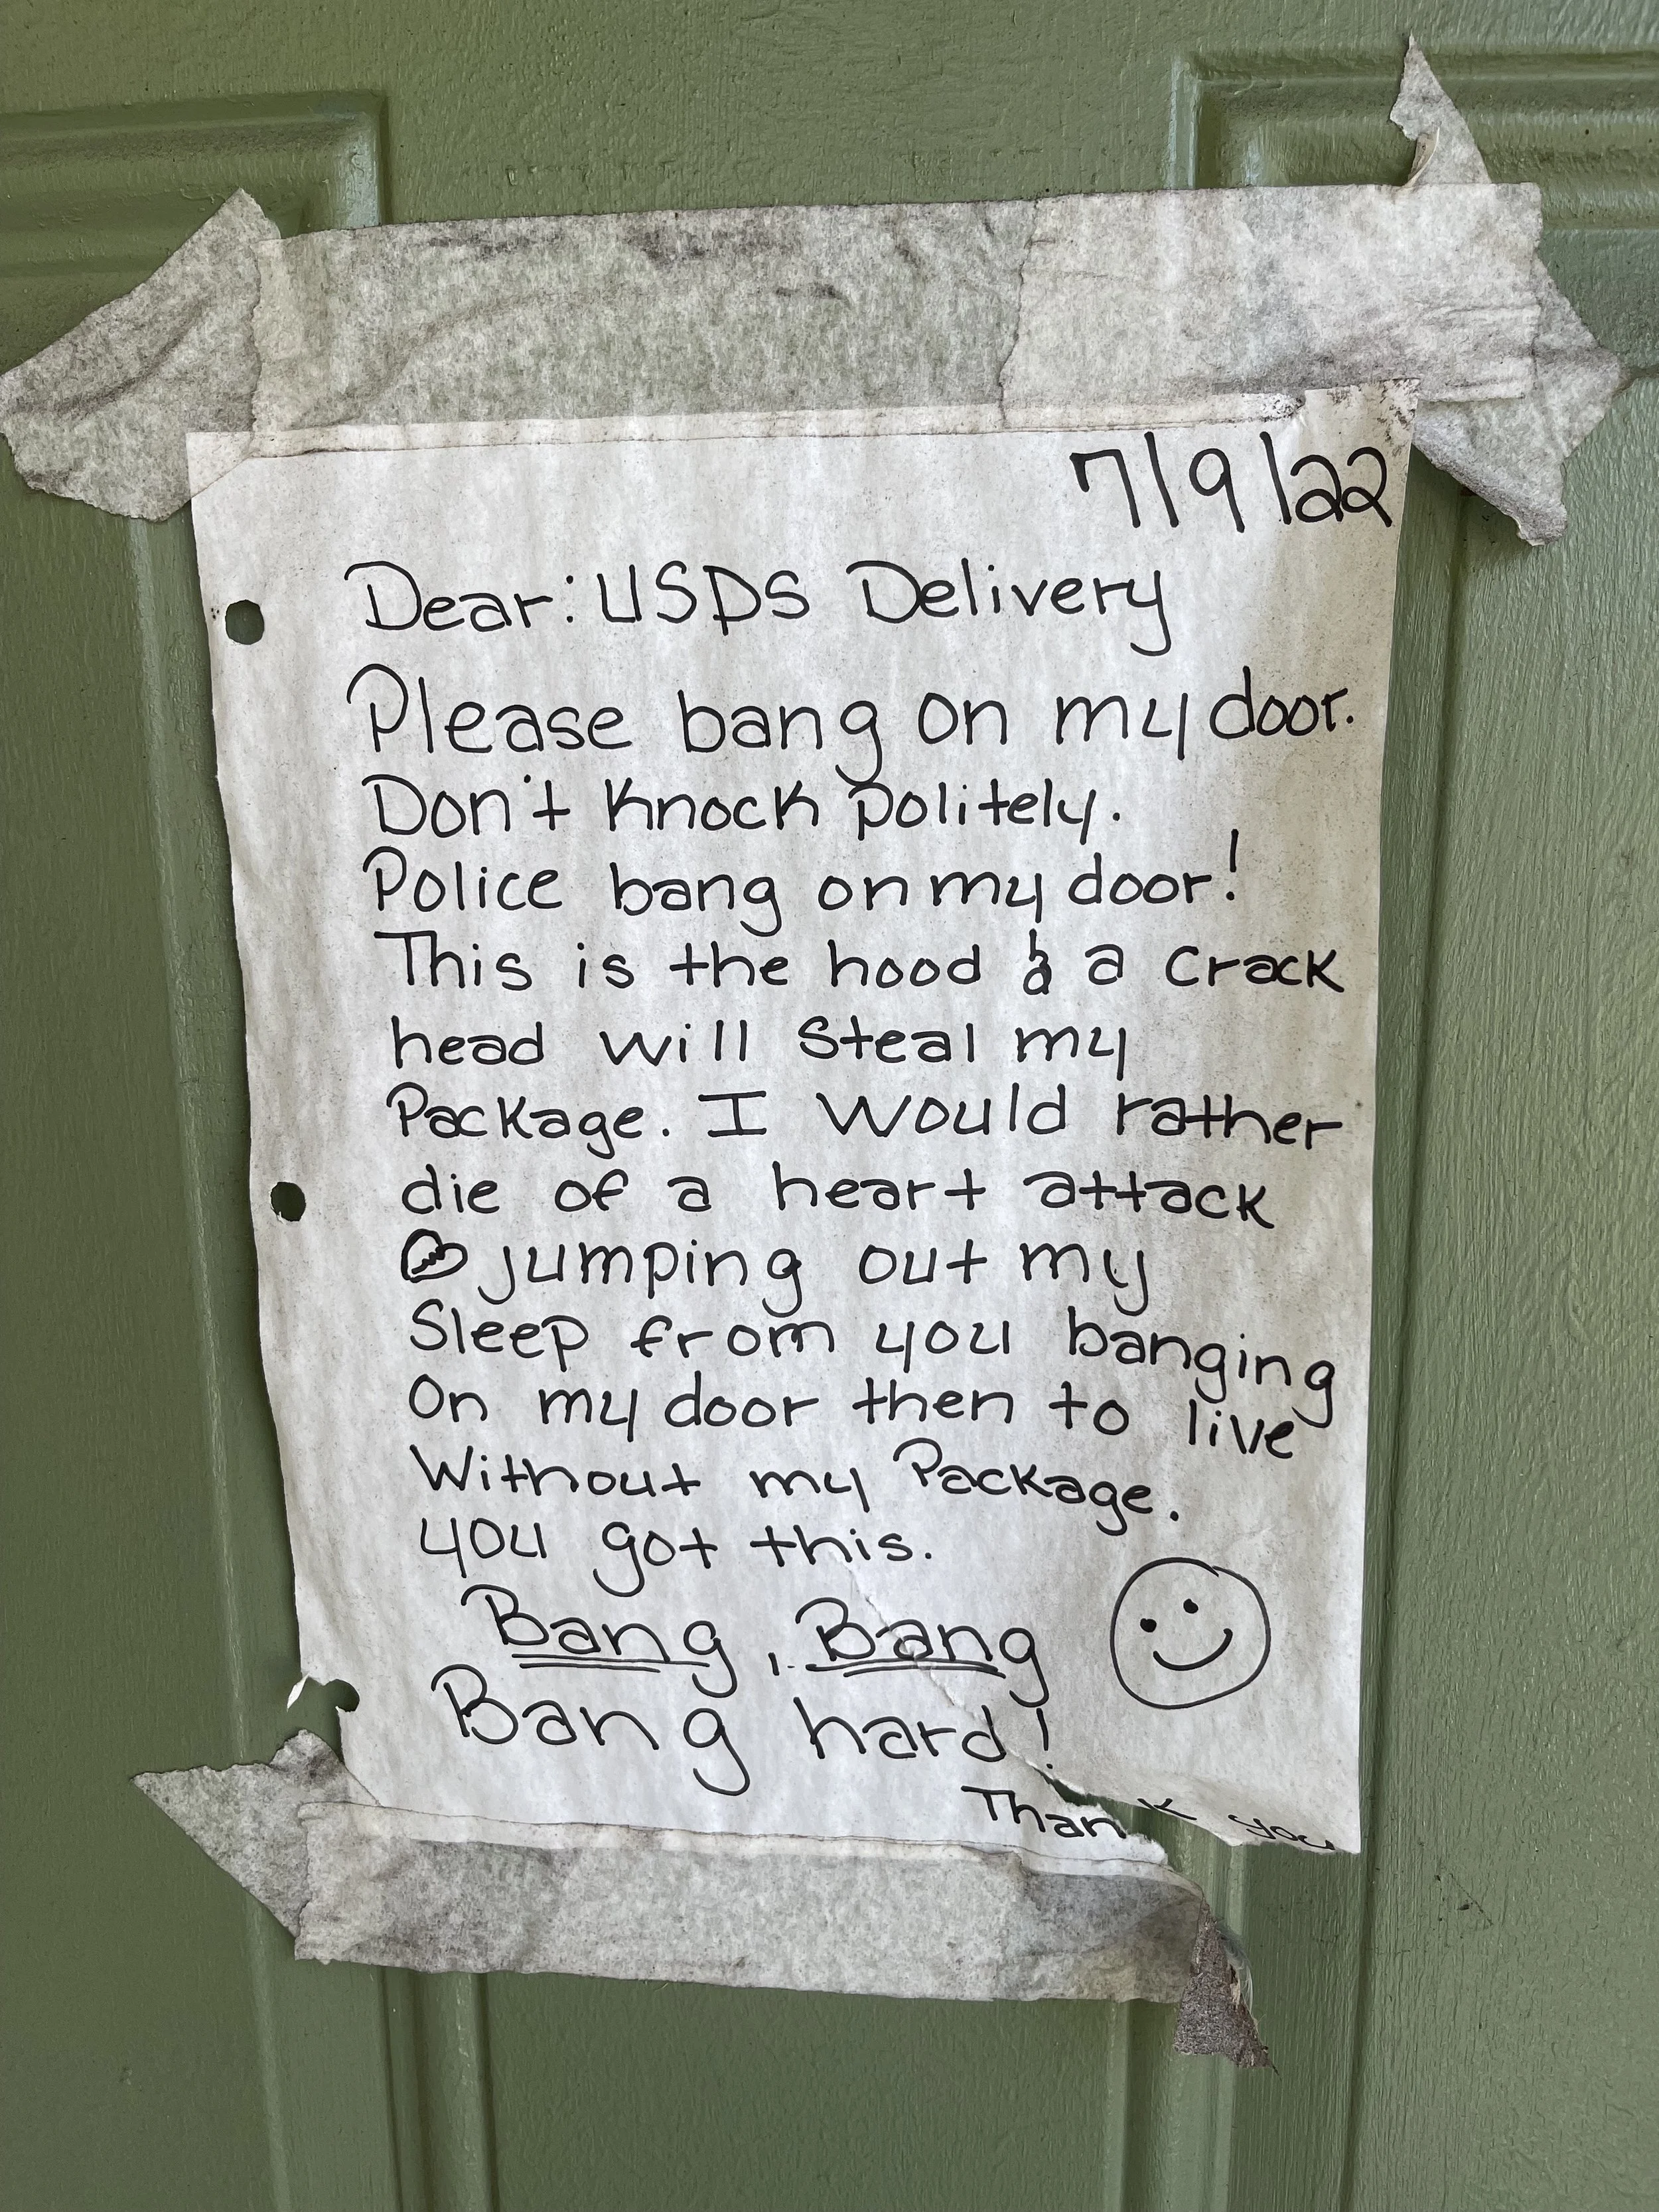 7/9/22
Dear: USPS Delivery
Please bang on my door.
Don't knock politely.
Police bang on my door!
This is the hood & a crack
head will steal my
Package. I would rather
die of a heart attack
jumping out my
sleep from you banging
on my door then to live
without my Package.
you got this.
Bang, Bang
Bang hard!
Thank you